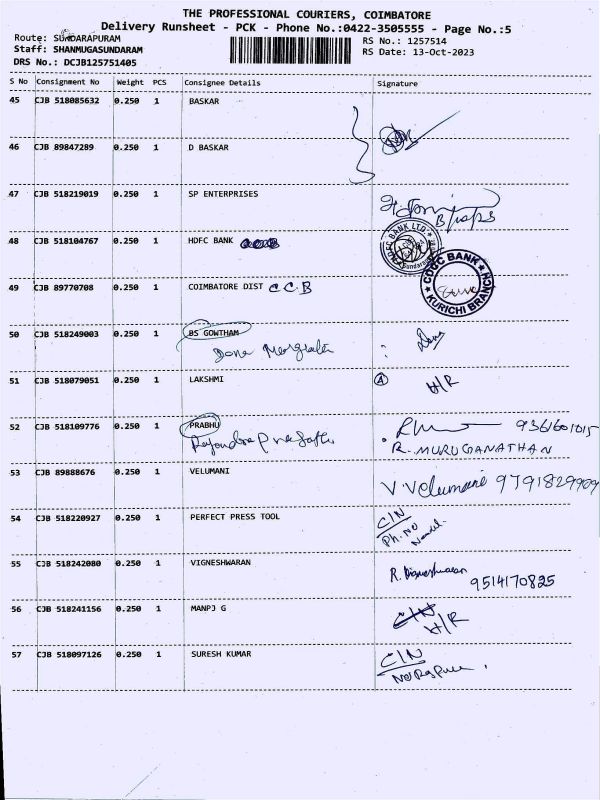 THE PROFESSIONAL COURIERS, COIMBATORE
Delivery Runsheet - PCK - Phone No.:0422-3505555 - Page No.:5
Route: SUNDARAPURAM
RS No.: 1257514
Staff: SHANMUGASUNDARAM
RS Date: 13-Oct-2023
DRS No.: DCJB125751405
S No Consignment No Weight PCS Consignee Details Signature
45 CJB 518085632 0.250 1 BASKAR
46 CJB 89847289 0.250 1 D BASKAR
47 CJB 518219019 0.250 1 SP ENTERPRISES
48 CJB 518104767 0.250 1 HDFC BANK
49 CJB 89770708 0.250 1 COIMBATORE DIST C.C.B
CDCC BANK
KURICHI BRANCH
50 CJB 518249003 0.250 1 BS GOWTHAM
51 CJB 518079051 0.250 1 LAKSHMI A H/R
52 CJB 518109776 0.250 1 PRABHU 9361601015
R. MURUGANATHAN
53 CJB 89888676 0.250 1 VELUMANI V Velumani 9791829909
54 CJB 518220927 0.250 1 PERFECT PRESS TOOL C/N
Ph. No
55 CJB 518242080 0.250 1 VIGNESHWARAN R. Vigneshwaran
9514170825
56 CJB 518241156 0.250 1 MANPJ G C/N H/R
57 CJB 518097126 0.250 1 SURESH KUMAR C/N